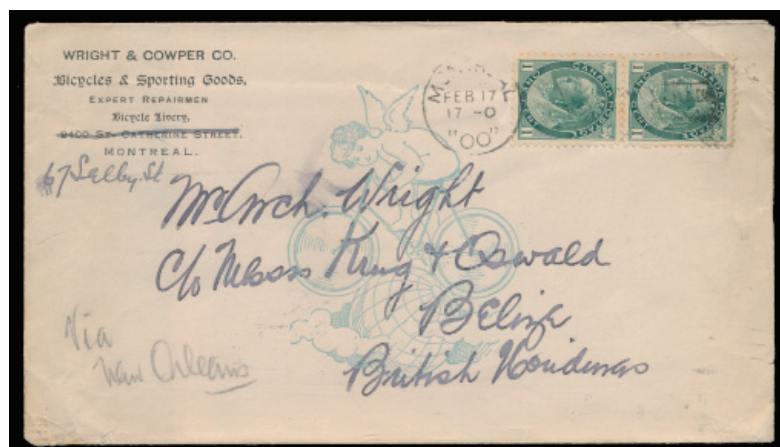 WRIGHT & COWPER CO.
Bicycles & Sporting Goods,
EXPERT REPAIRMEN
Bicycle Livery,
2400 ST. CATHERINE STREET,
MONTREAL.
67 Selby. St
MONTREAL
FEB 17
17 - 0
"00"
CANADA POSTAGE
CANADA POSTAGE
Mr. Arch. Wright
c/o Messrs King & Oswald
Belize
British Honduras
Via
New Orleans